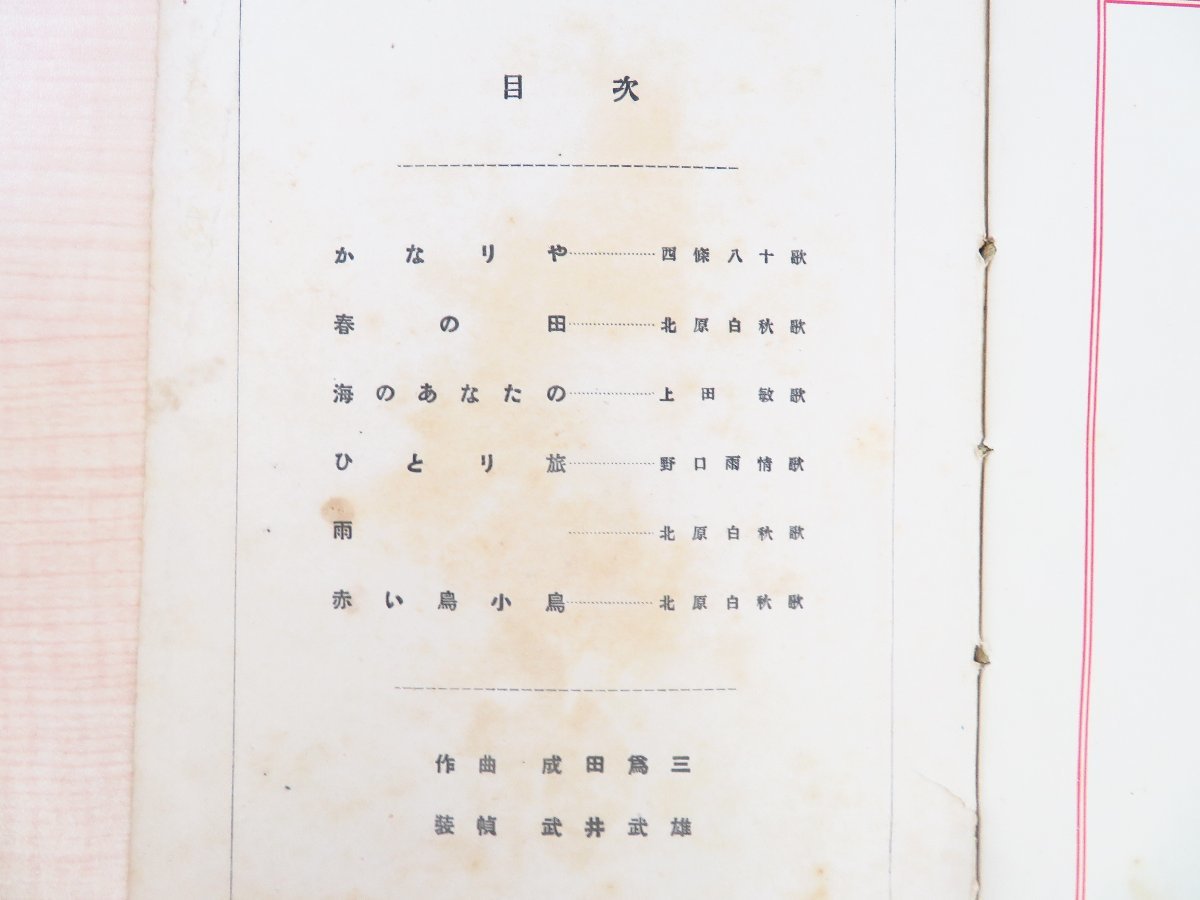 目次
かなりや…………西條八十歌
春の田…………北原白秋歌
海のあなたの…………上田敏歌
ひとり旅…………野口雨情歌
雨…………北原白秋歌
赤い鳥小鳥…………北原白秋歌
作曲 成田爲三
装幀 武井武雄